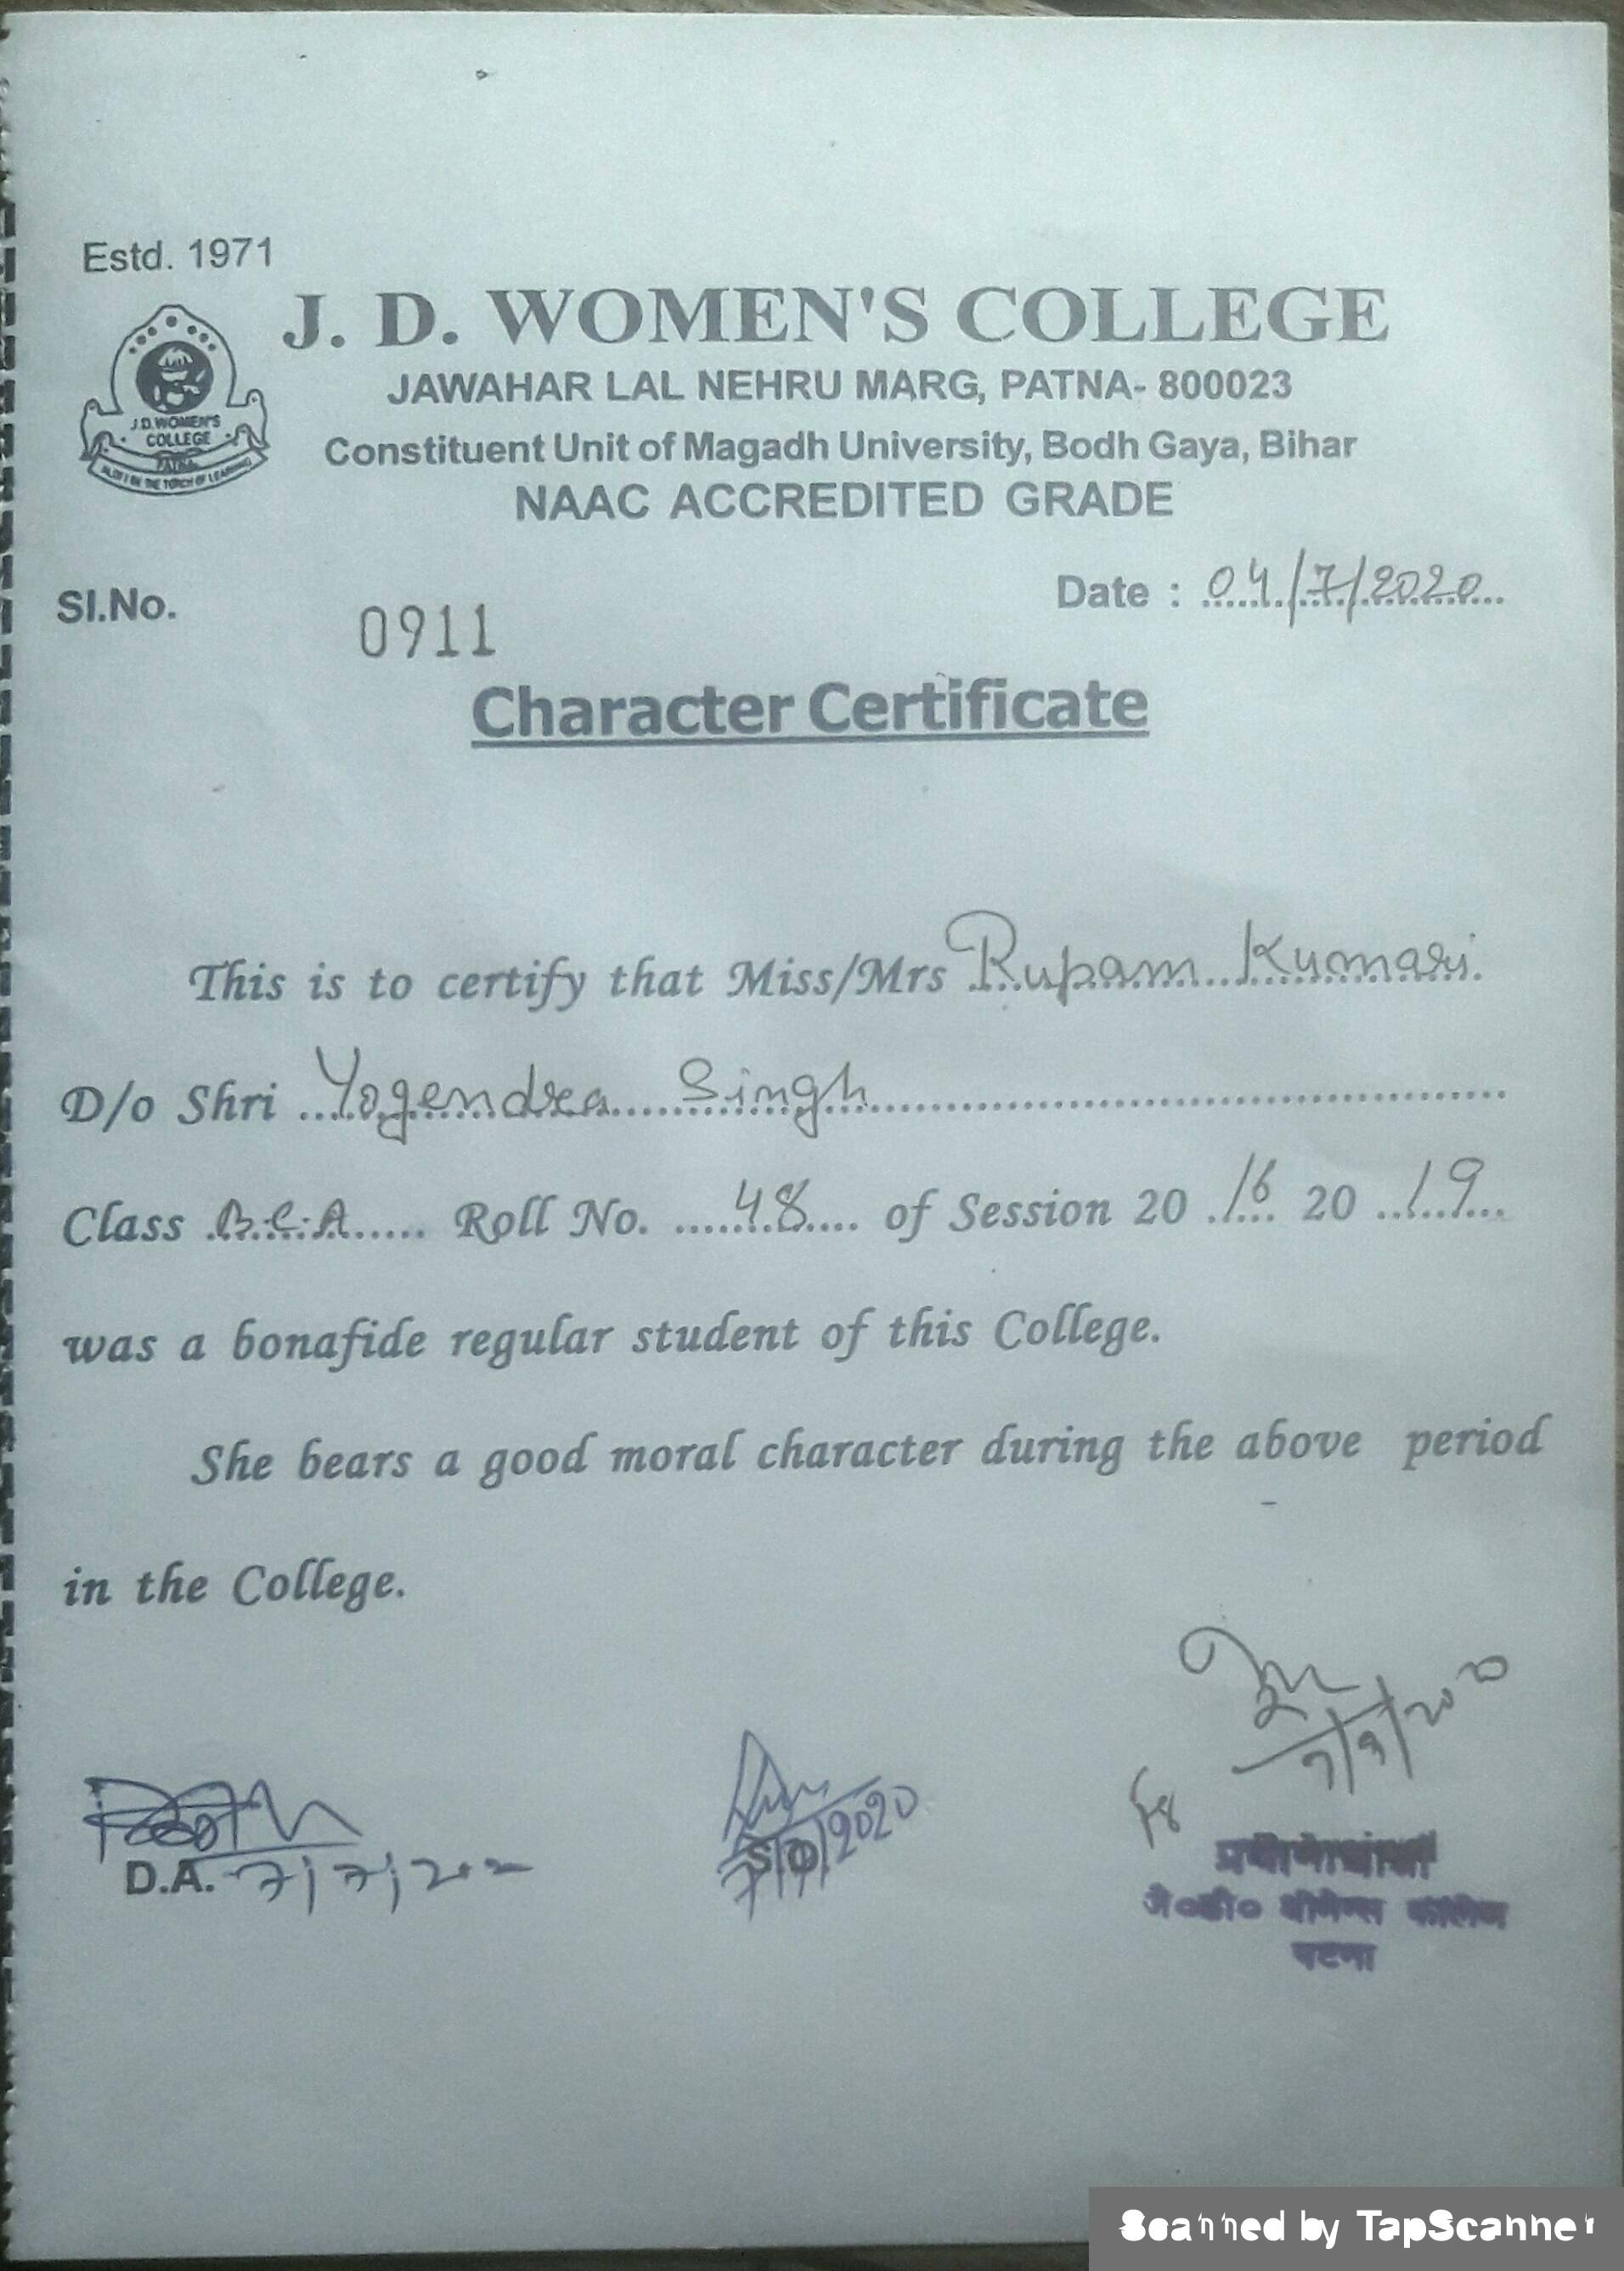 Estd. 1971
J. D. WOMEN'S COLLEGE
JAWAHAR LAL NEHRU MARG, PATNA- 800023
Constituent Unit of Magadh University, Bodh Gaya, Bihar
NAAC ACCREDITED GRADE
J.D. WOMEN'S
COLLEGE
PATNA
THE TORCH OF LEARNING
Sl.No. 0911
Date : 04/7/2020
Character Certificate
This is to certify that Miss/Mrs Rupam Kumari
D/o Shri Yogendra Singh
Class B.C.A Roll No. 48 of Session 20 16 20 19
was a bonafide regular student of this College.
She bears a good moral character during the above period
in the College.
D.A. 7/7/202
S O 7/7/2020
प्रधानाचार्या
जे०डी० वीमेन्स कॉलेज
पटना
Scanned by TapScanner